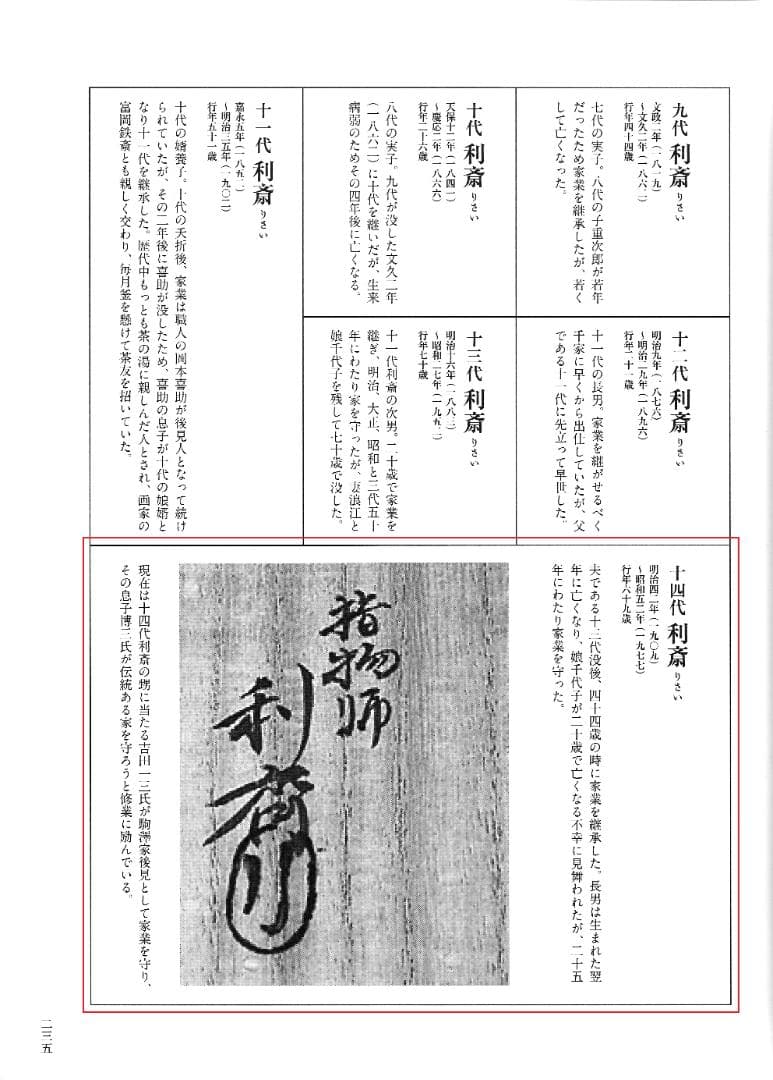 九代 利斎 りさい
文政二年(一八一九)
〜文久二年(一八六二)
行年四十四歳
七代の実子。八代の子重次郎が若年
だったため家業を継承したが、若く
して亡くなった。
十代 利斎 りさい
天保十二年(一八四一)
〜慶応二年(一八六六)
行年二十六歳
八代の実子。九代が没した文久二年
(一八六二)に十代を継いだが、生来
病弱のためその四年後に亡くなる。
十一代 利斎 りさい
嘉永五年(一八五二)
〜明治三五年(一九〇二)
行年五十一歳
十代の婿養子。十代の夭折後、家業は職人の岡本喜助が後見人となって続け
られていたが、その二年後に喜助が没したため、喜助の息子が十代の娘婿と
なり十一代を継承した。歴代中もっとも茶の湯に親しんだ人とされ、画家の
富岡鉄斎とも親しく交わり、毎月釜を懸けて茶友を招いていた。
十二代 利斎 りさい
明治九年(一八七六)
〜明治二九年(一八九六)
行年二十一歳
十一代の長男。家業を継がせるべく
千家に早くから出仕していたが、父
である十一代に先立って早世した。
十三代 利斎 りさい
明治十六年(一八八三)
〜昭和二七年(一九五二)
行年七十歳
十一代利斎の次男。二十歳で家業を
継ぎ、明治、大正、昭和と三代五十
年にわたり家を守ったが、妻浪江と
娘千代子を残して七十歳で没した。
十四代 利斎 りさい
明治四二年(一九〇九)
〜昭和五二年(一九七七)
行年六十九歳
夫である十三代没後、四十四歳の時に家業を継承した。長男は生まれた翌
年に亡くなり、娘千代子が二十歳で亡くなる不幸に見舞われたが、二十五
年にわたり家業を守った。
指物師
利斎
現在は十四代利斎の甥に当たる吉田一三氏が駒澤家後見として家業を守り、
その息子博三氏が伝統ある家を守ろうと修業に励んでいる。
二三五